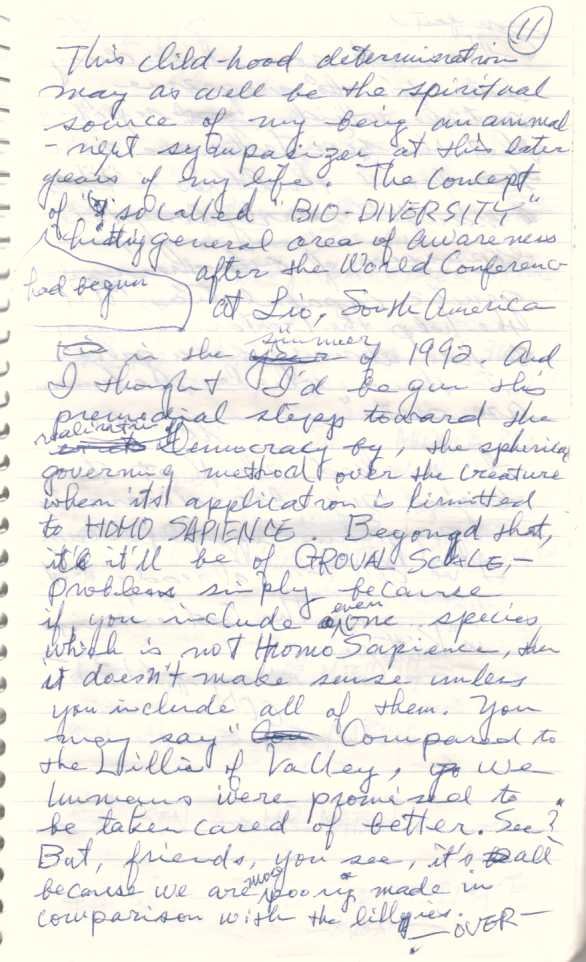 11
This child-hood determination
may as well be the spiritual
source of my being an animal
-right sympasizer at this later
years of my life. The concept
of so called "BIO-DIVERSITY"
general area of awareness
had begun
after the World Conference
at Lio, South America
in the summer of 1992. And
I thought I'd begun this
premedial stepp toward the
realization of
Democracy by, the spherical
governing method over the creature
when its application is limitted
to HOMO SAPIENCE. Begongd that,
it'll be of GROVAL SCALE,-
Problem simply because
if you include even one species
which is not Homo Sapience, then
it doesn't make sense unless
you include all of them. You
may say "Compared to
the Lillie of Valley, we
humans were promised to
be taken cared of better. See?
But, friends, you see, it's all
because we are more poorly made in
comparison with the lillies.
— OVER —